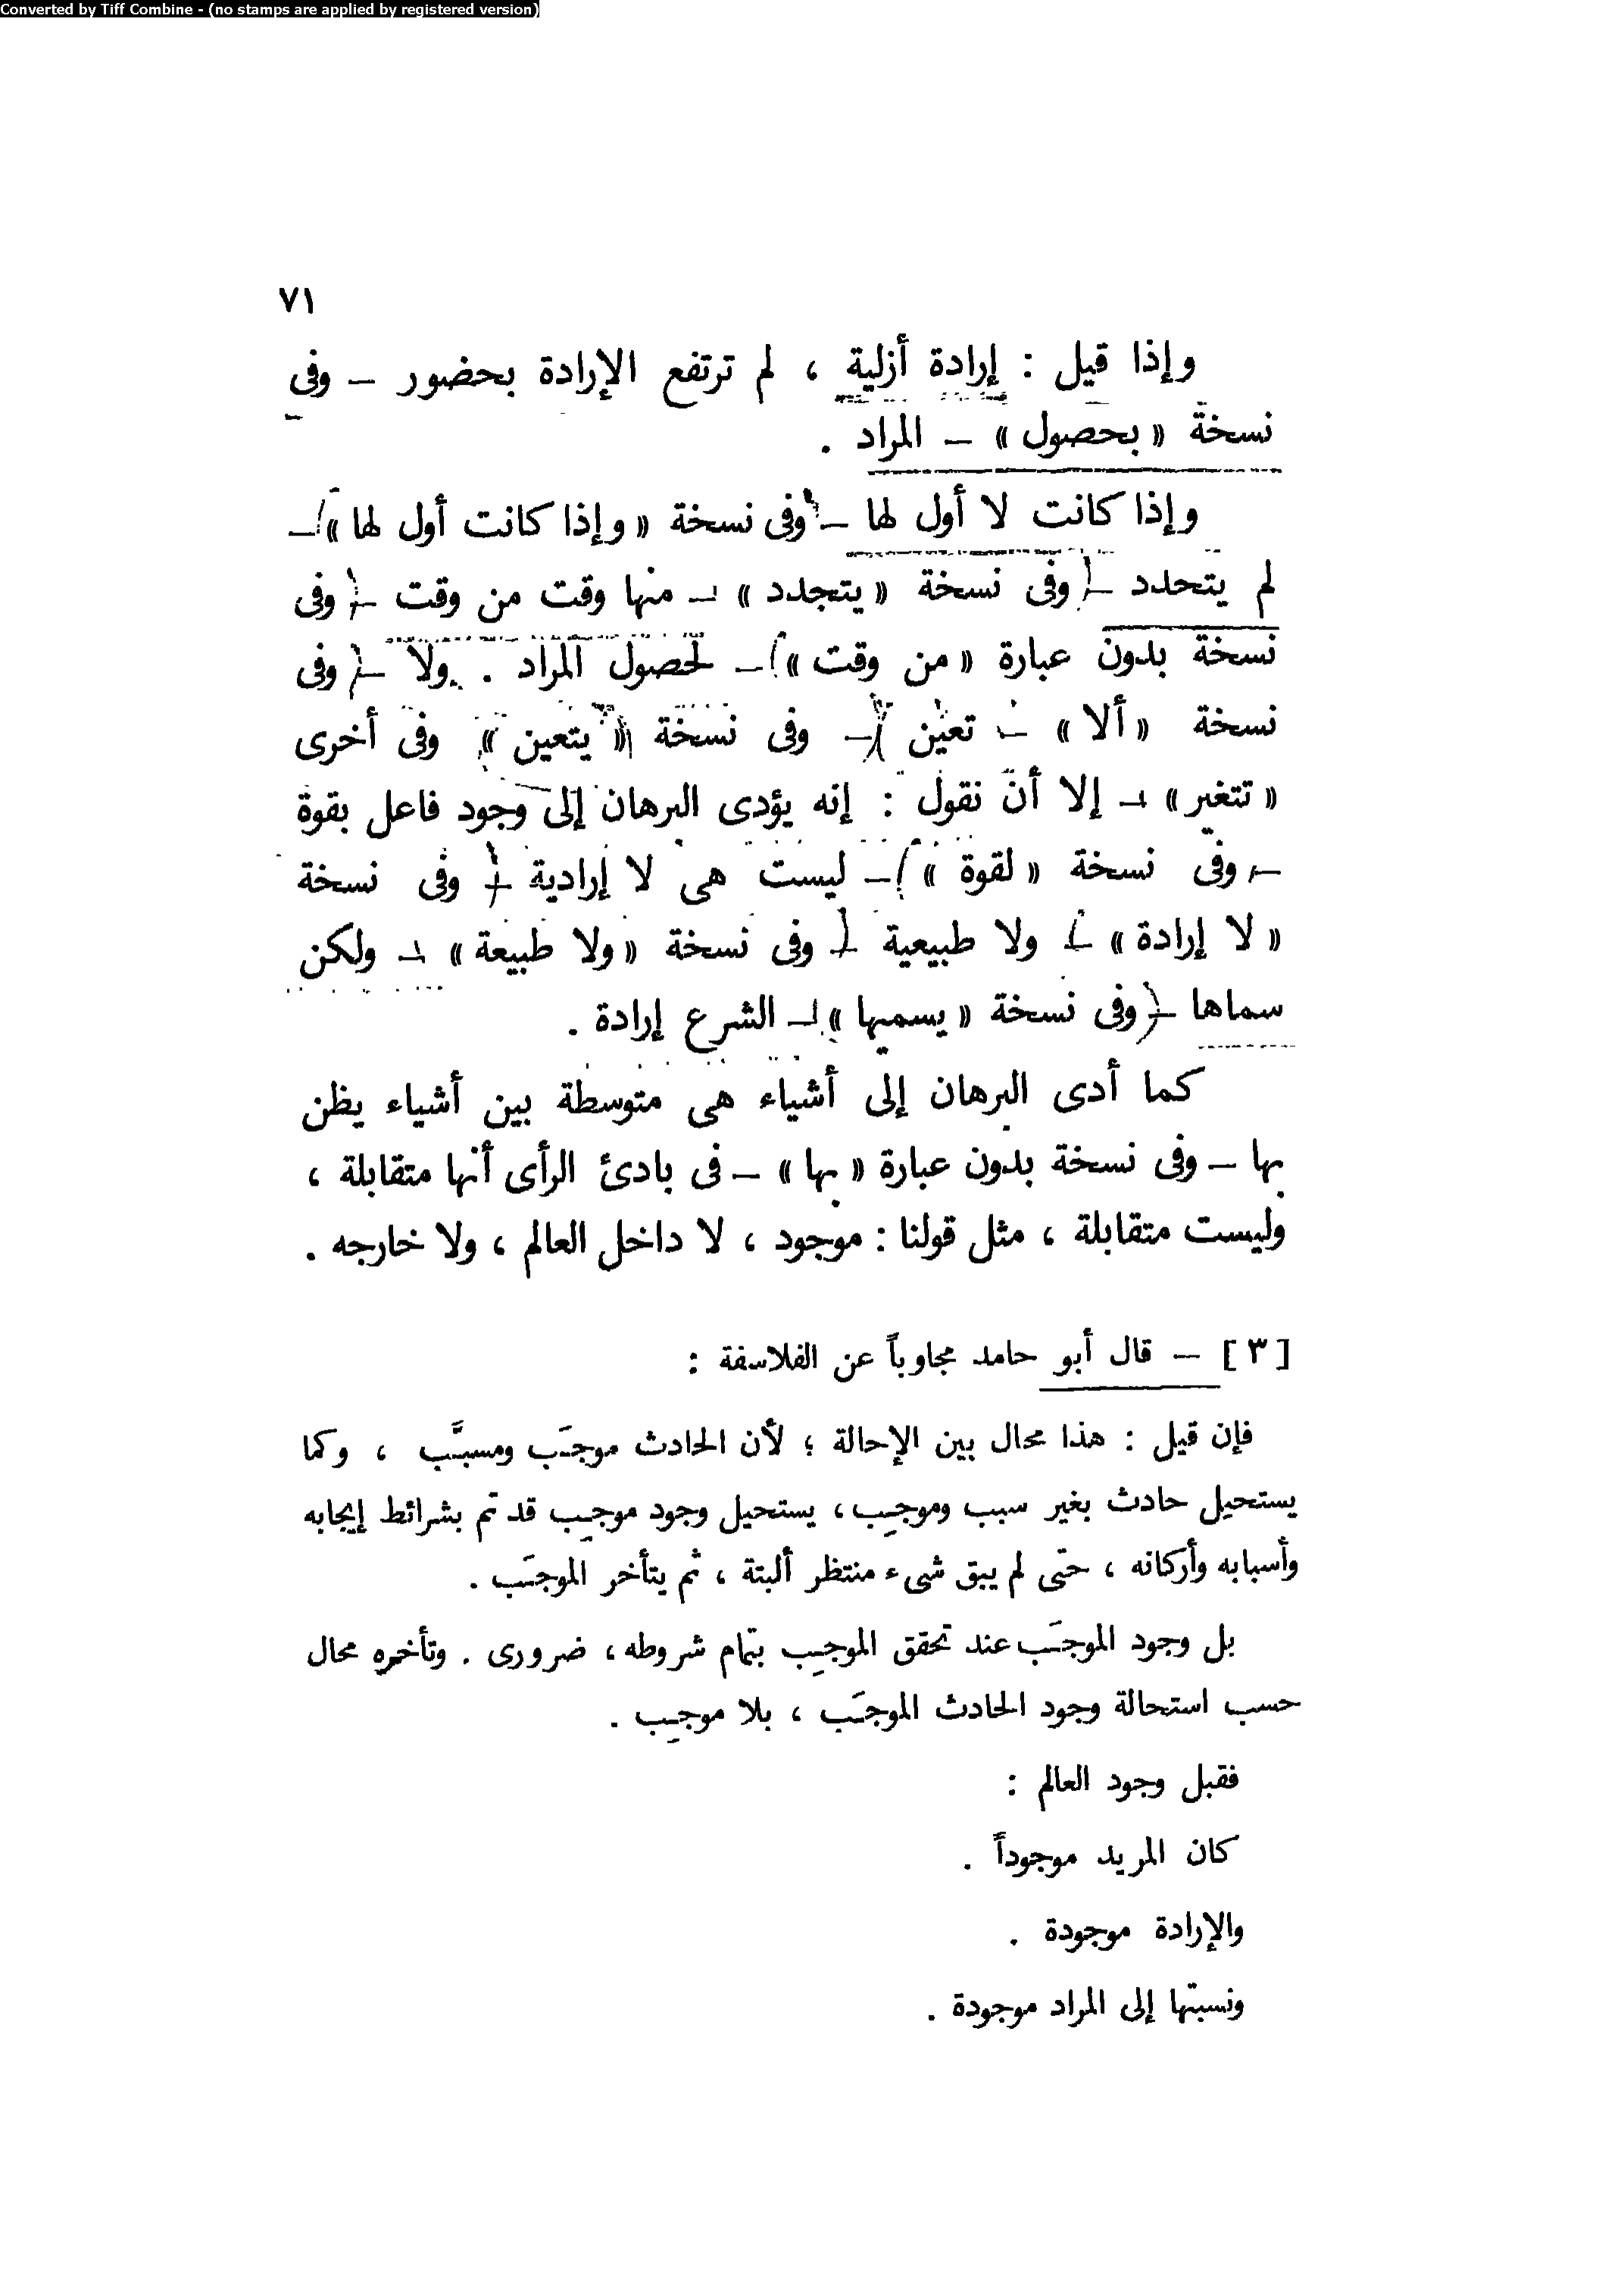 Converted by Tiff Combine - (no stamps are applied by registered version)
٧١
وإذا قيل : إرادة أزلية ، لم ترتفع الإرادة بحضور – وفى
نسخة « بحصول » – المراد .
وإذا كانت لا أول لها – وفى نسخة « وإذا كانت أول لها » –
لم يتحدد – وفى نسخة « يتجدد » – منها وقت من وقت – وفى
نسخة بدون عبارة « من وقت » – لحصول المراد . ولا – وفى
نسخة « ألا » – تعين – وفى نسخة « يتعين » وفى أخرى
« تتغير » – إلا أن نقول : إنه يؤدى البرهان إلى وجود فاعل بقوة
– وفى نسخة « لقوة » – ليست هى لا إرادية – وفى نسخة
« لا إرادة » – ولا طبيعية – وفى نسخة « ولا طبيعة » – ولكن
سماها – وفى نسخة « يسميها » – الشرع إرادة .
كما أدى البرهان إلى أشياء هى متوسطة بين أشياء يظن
بها – وفى نسخة بدون عبارة « بها » – فى بادئ الرأى أنها متقابلة ،
وليست متقابلة ، مثل قولنا : موجود ، لا داخل العالم ، ولا خارجه .
[ ٣ ] – قال أبو حامد مجاوباً عن الفلاسفة :
فإن قيل : هذا محال بين الإحالة ؛ لأن الحادث موجَب ومسبَّب ، وكما
يستحيل حادث بغير سبب وموجِب ، يستحيل وجود موجِب قد تم بشرائط إيجابه
وأسبابه وأركانه ، حتى لم يبق شىء منتظر ألبتة ، ثم يتأخر الموجَب .
بل وجود الموجَب عند تحقق الموجِب بتمام شروطه ، ضرورى . وتأخره محال
حسب استحالة وجود الحادث الموجَب ، بلا موجِب .
فقبل وجود العالم :
كان المريد موجوداً .
والإرادة موجودة .
ونسبتها إلى المراد موجودة .